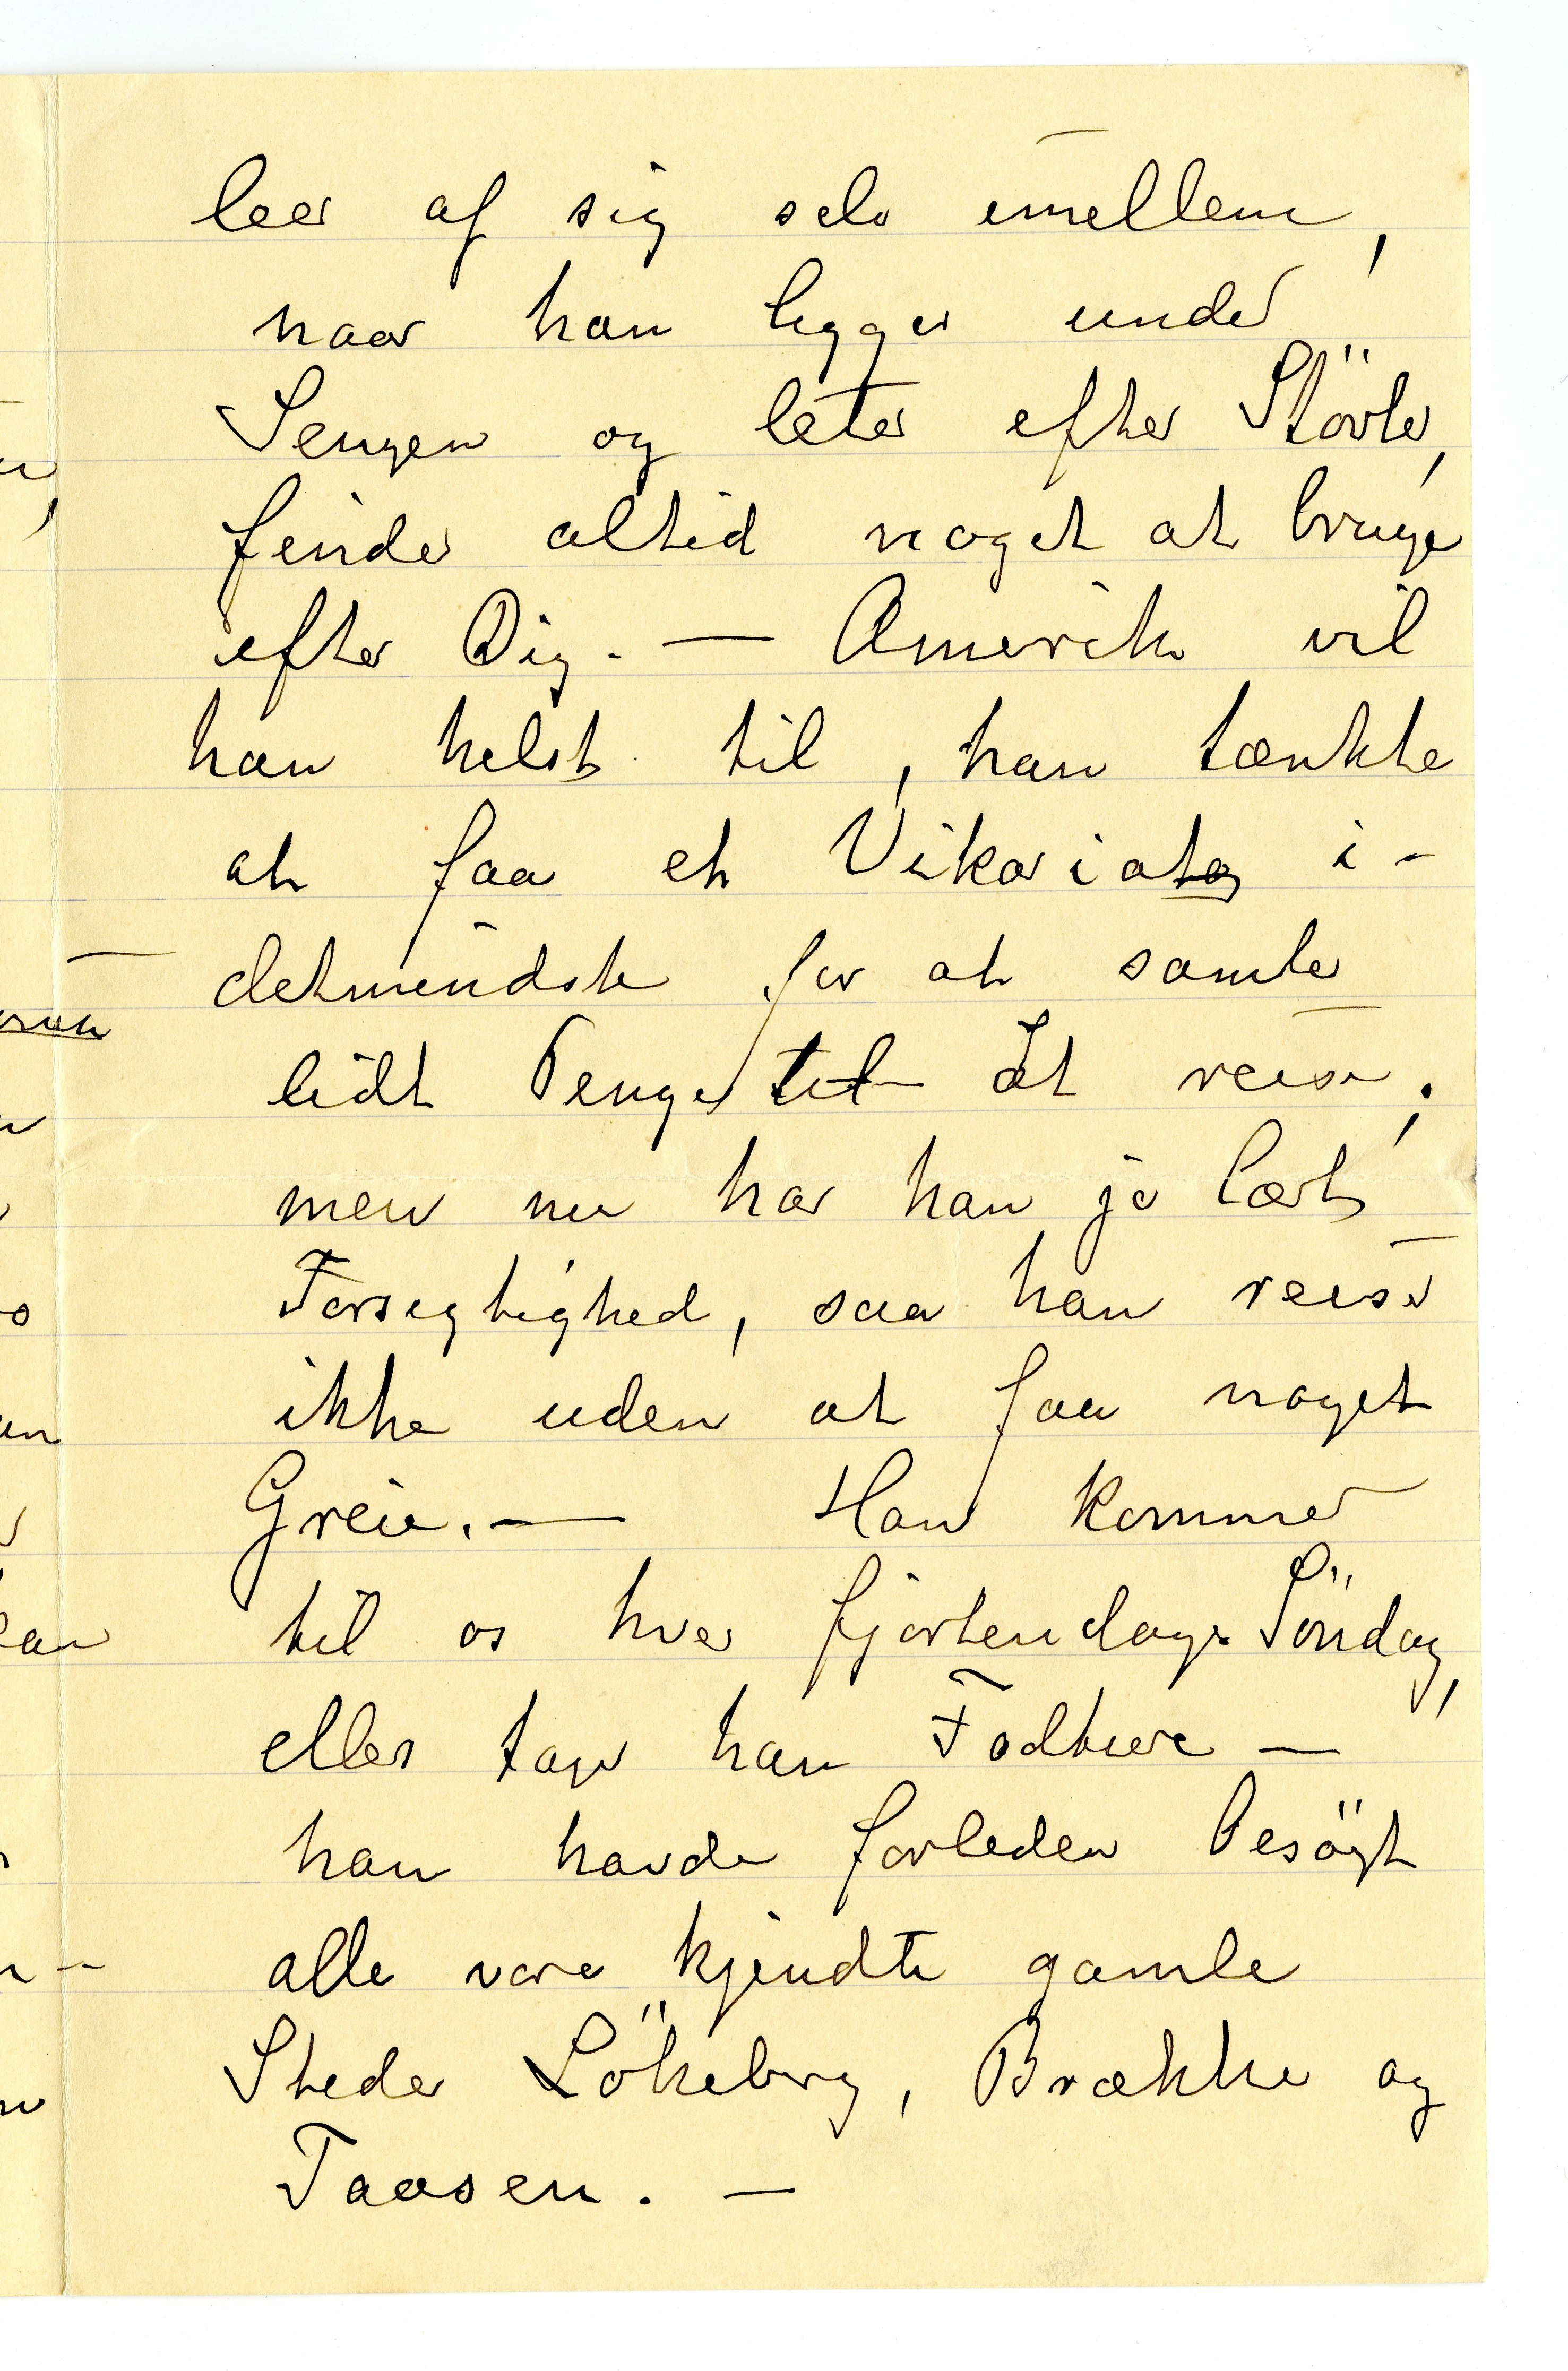 leer af sig selv imellem,
naar han ligger under
Sengen og leter efter Støvler,
finder altid noget at bruge
efter Dig. — Amerika vil
han helst til, han tænkte
at faa et Vikariat i-
detmindste for at samle
lidt Penge til at reise;
men nu har han jo lært
Forsigtighed, saa han reiser
ikke uden at faa noget
Greie. — Han kommer
til os hver fjortendags Söndag,
eller tager han Fodture —
han havde forleden besögt
alle vore kjendte gamle
Steder Lökeberg, Brække og
Taasen. —